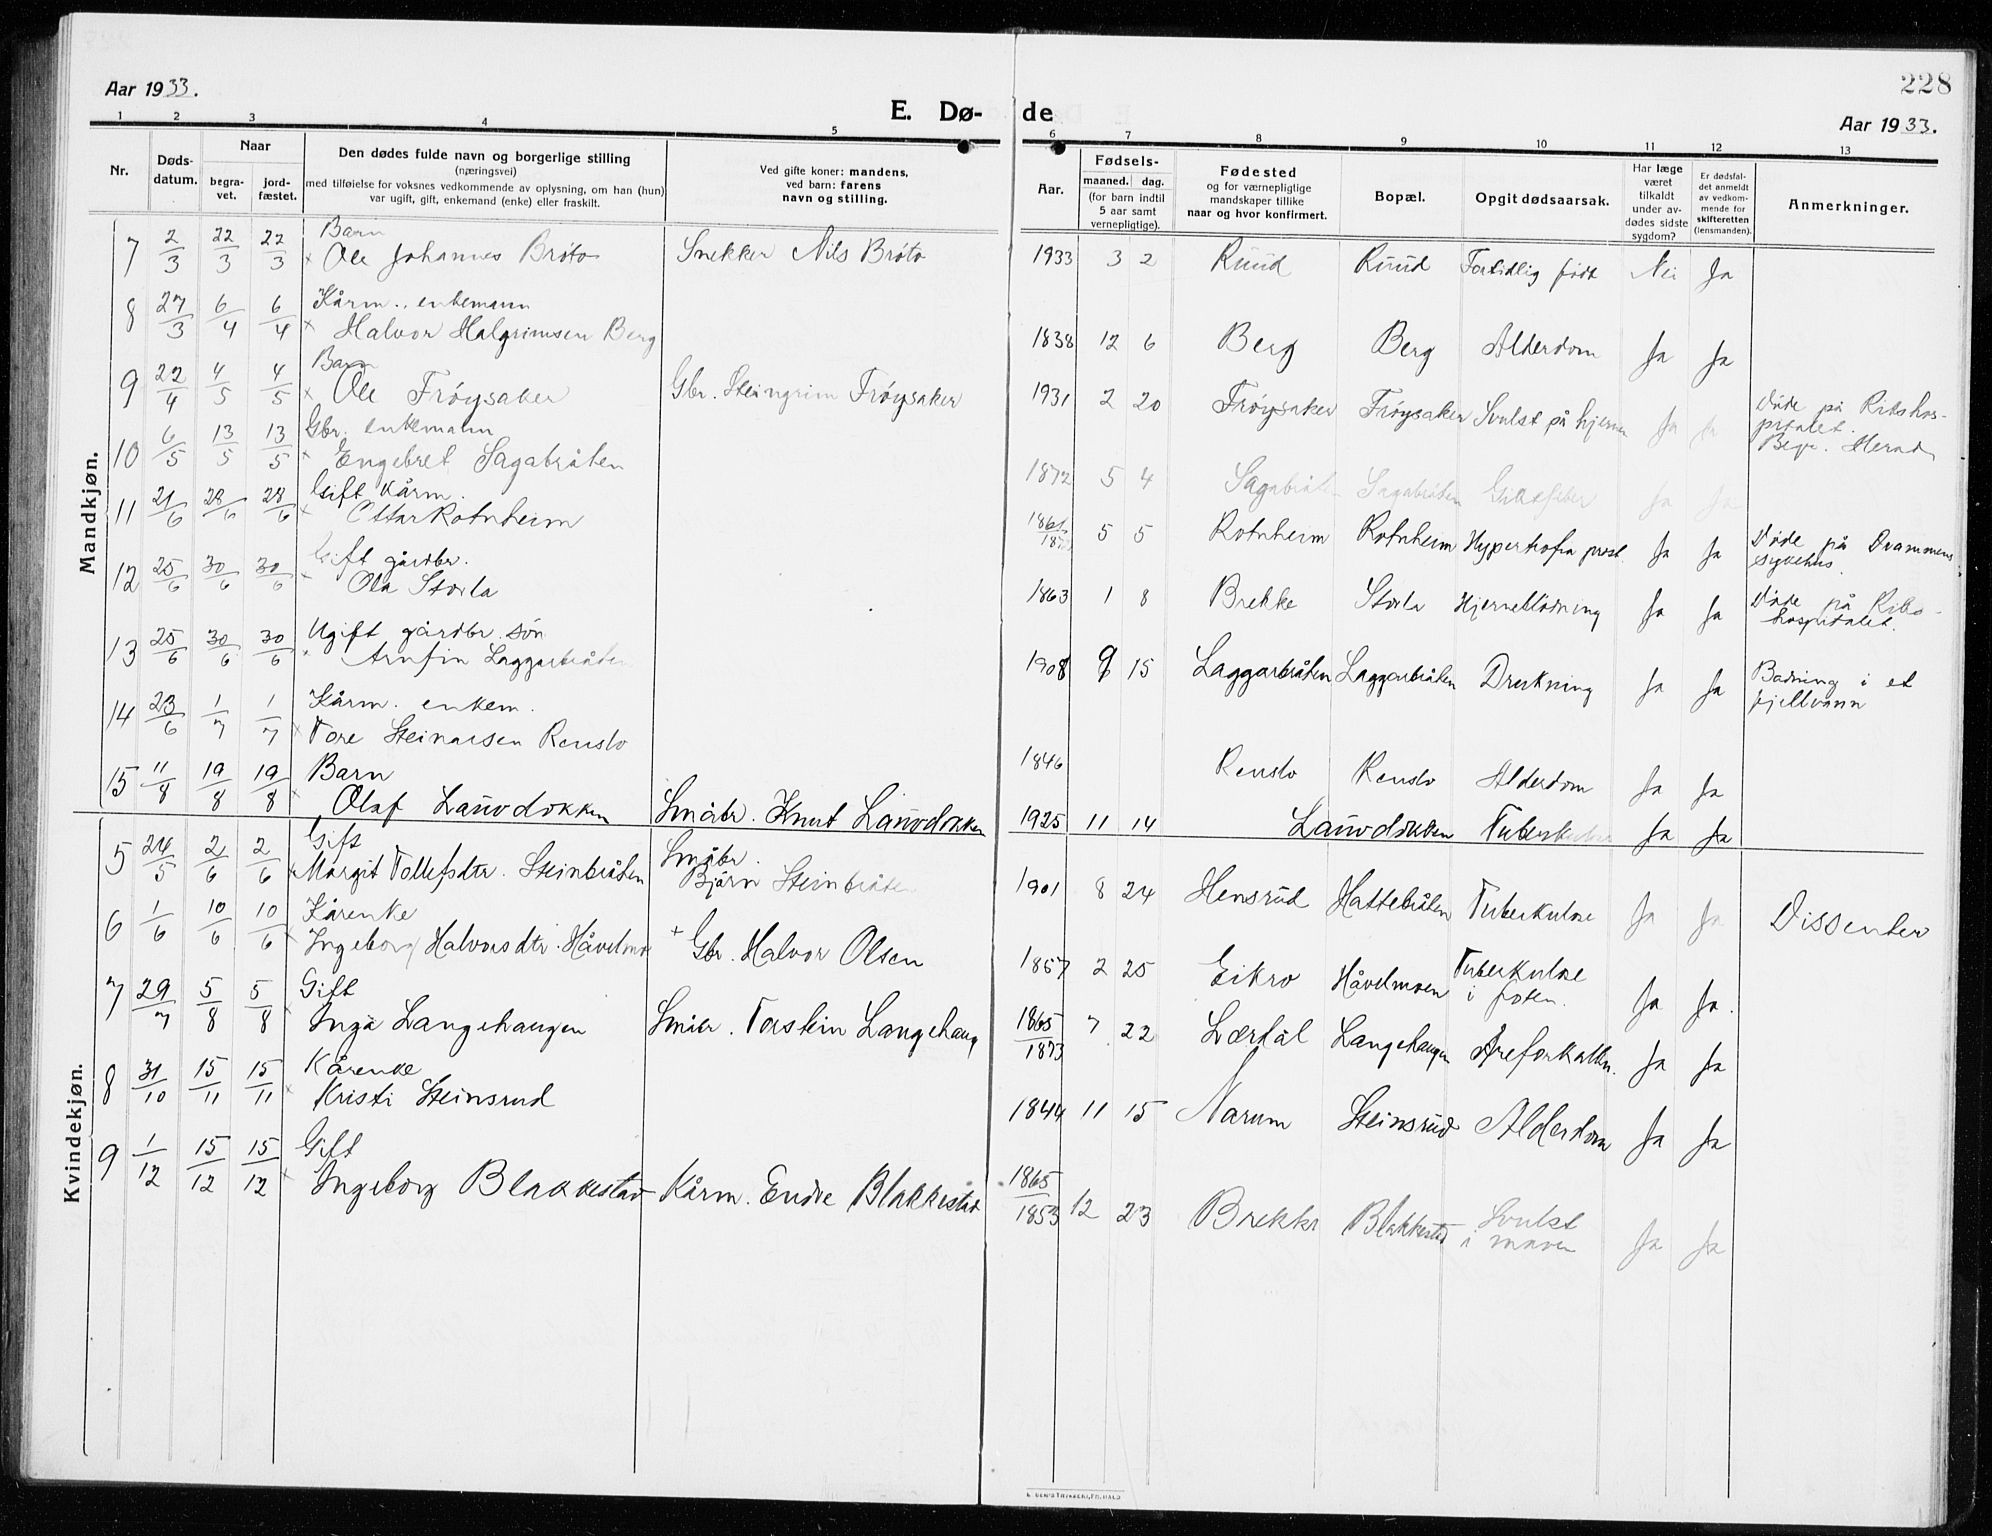 Aar 1933.
E. Dø- de
228
Aar 1933.
1 2 3 4 5 6 7 8 9 10 11 12 13
Nr.
Døds-
datum.
Naar
begra-
vet.
jord-
fæstet.
Den dødes fulde navn og borgerlige stilling
(næringsvei)
med tilføielse for voksnes vedkommende av oplysning, om han (hun)
var ugift, gift, enkemand (enke) eller fraskilt.
Ved gifte koner: mandens,
ved barn: farens
navn og stilling.
Aar.
Fødsels-
maaned. dag.
(for barn indtil
5 aar samt
vernepligtige).
Fødested
og for værnepligtige
mandskaper tillike
naar og hvor konfirmert.
Bopæl.
Opgit dødsaarsak.
Har læge
været
tilkaldt
under av-
dødes sidste
sygdom?
Er dødsfal-
det anmeldt
av vedkom-
mende for
skifteretten
(lensmanden).
Anmerkninger.
Mandkjøn.
7 2/3 22/3 22/3 Barn
x Ole Johannes Bröto Snekker Nils Bröto 1933 3 2 Ruud Ruud Fortidlig född Nei Ja
8 27/3 6/4 6/4 Kårm. enkemann
x Halvor Halgrimsen Berg 1838 12 6 Berg Berg Alderdom Ja Ja
9 22/4 4/5 4/5 Barn
x Ole Fröysaker Gbr. Steingrim Fröysaker 1931 2 20 Fröysaker Fröysaker Svulst på hjernen Ja Ja Döde på Rikshos-
pitalet.
Begr. Herad
10 6/5 13/5 13/5 Gbr. enkemann
x Engebret Sagabråten 1872 5 4 Sagabråten Sagabråten Giktfeber Ja Ja
11 21/6 28/6 28/6 Gift Kårm.
x Ottar Rotnheim 5 5 Rotnheim Rotnheim Hypertrofia prost. Ja Ja Döde på Drammens
sykehus.
12 25/6 30/6 30/6 Gift gårdbr.
Ola Storla 1863 1 8 Brekke Storla Hjerneblödning Ja Ja Döde på Riks-
hospitalet.
13 25/6 30/6 30/6 Ugift gårdbr. sön
x Arnfin Laggarbråten 1908 9 15 Laggarbråten Laggarbråten Drukning Ja Ja Badning i et
fjellvann
14 23/6 1/7 1/7 Kårm. enkem.
x Tore Steinarsen Renslo 1846 Renslo Renslo Alderdom Ja Ja
15 11/8 19/8 19/8 Barn
Olaf Lauvdokken Småbr. Knut Lauvdokken 1925 11 14 Lauvdokken Tuberkulose Ja Ja
Kvindekjøn.
5 24/5 2/6 2/6 Gift
x Margit Tollefsdtr. Steinbråten Småbr.
Björn Steinbråten 1901 8 24 Hensrud Hattebråten Tuberkulose Ja Ja Dissenter
6 1/6 10/6 10/6 Kårenke
x Ingeborg Halvorsdtr. Håvelmoen + Gbr. Halvor Olsen 1857 2 25 Eikro Håvelmoen Tuberkulose
i foten. Ja Ja.
7 29/7 5/8 5/8 Gift
x Inga Langehaugen Småbr. Torstein Langehaug 1865/1873 7 22 Lærdal Langehaugen Åreforkalkn. Ja Ja
8 31/10 15/11 15/11 Kårenke
x Kristi Steinsrud 1844 11 15 Narum Steinsrud Alderdom Ja Ja
9 1/12 15/12 15/12 Gift
x Ingeborg Blakkestad Kårm. Endre Blakkestad 1865/1853 12 23 Brekke Blakkestad Svulst
i maven Ja Ja